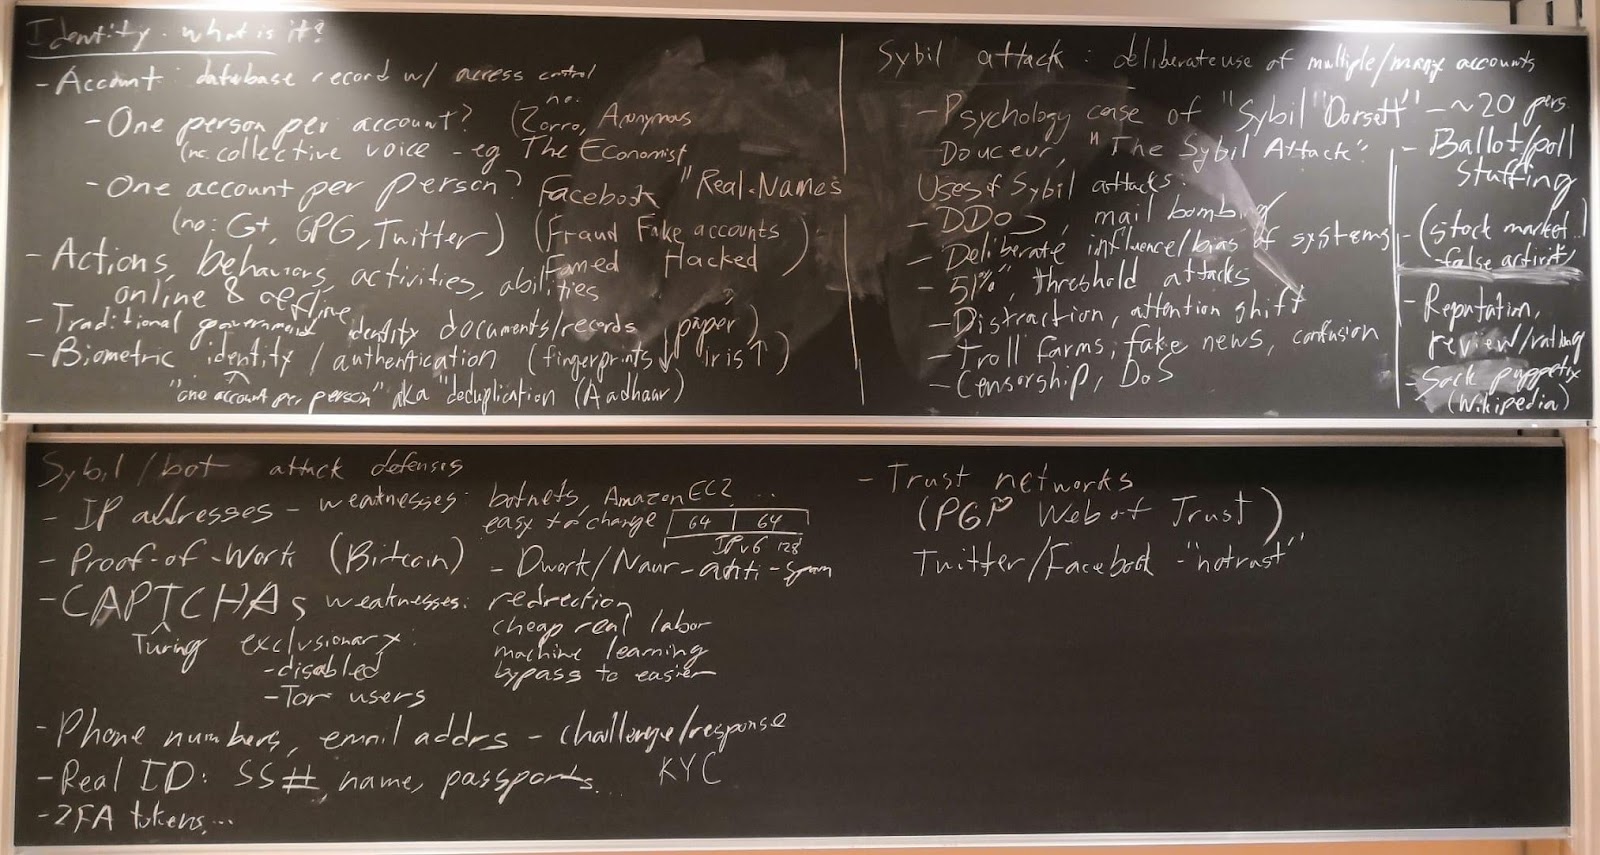 Identity - what is it?
- Account: database record w/ access control
- One person per account? (no: Zorro, Anonymous
(no: collective voice - eg The Economist
- One account per person? Facebook "Real-Names
(no: G+, GPG, Twitter) (Fraud Fake accounts
Famed Hacked)
- Actions, behaviors, activities, abilities
online & offline
- Traditional government identity documents/records (paper)
- Biometric identity / authentication (fingerprints↓ iris↑)
"one account per person" aka "deduplication (Aadhaar)
Sybil attack: deliberate use of multiple/many accounts
- Psychology case of "Sybil "Dorsett" - ~20 pers.
- Douceur, "The Sybil Attack"
Uses of Sybil attacks:
- DDoS, mail bombing
- Deliberate influence/bias of systems
- 51%", threshold attacks
- Distraction, attention shift
- Troll farms, fake news, confusion
- Censorship, DoS
- Ballot/poll
stuffing
- (stock market
false activity)
- Reputation,
review/rating
- Sock puppetry
(Wikipedia)
Sybil/bot attack defenses
- IP addresses - weaknesses: botnets, Amazon EC2 ...
easy to change 64 64
IPv6 128
- Proof-of-Work (Bitcoin) - Dwork/Naur - anti-spam
- CAPTCHAs weaknesses: redirection
Turing
cheap real labor
machine learning
bypass to easier
exclusionary:
- disabled
- Tor users
- Phone numbers, email addrs - challenge/response
- Real ID: SS#, name, passports... KYC
- 2FA tokens, ...
- Trust networks
(PGP Web of Trust)
Twitter/Facebook - "notrust"